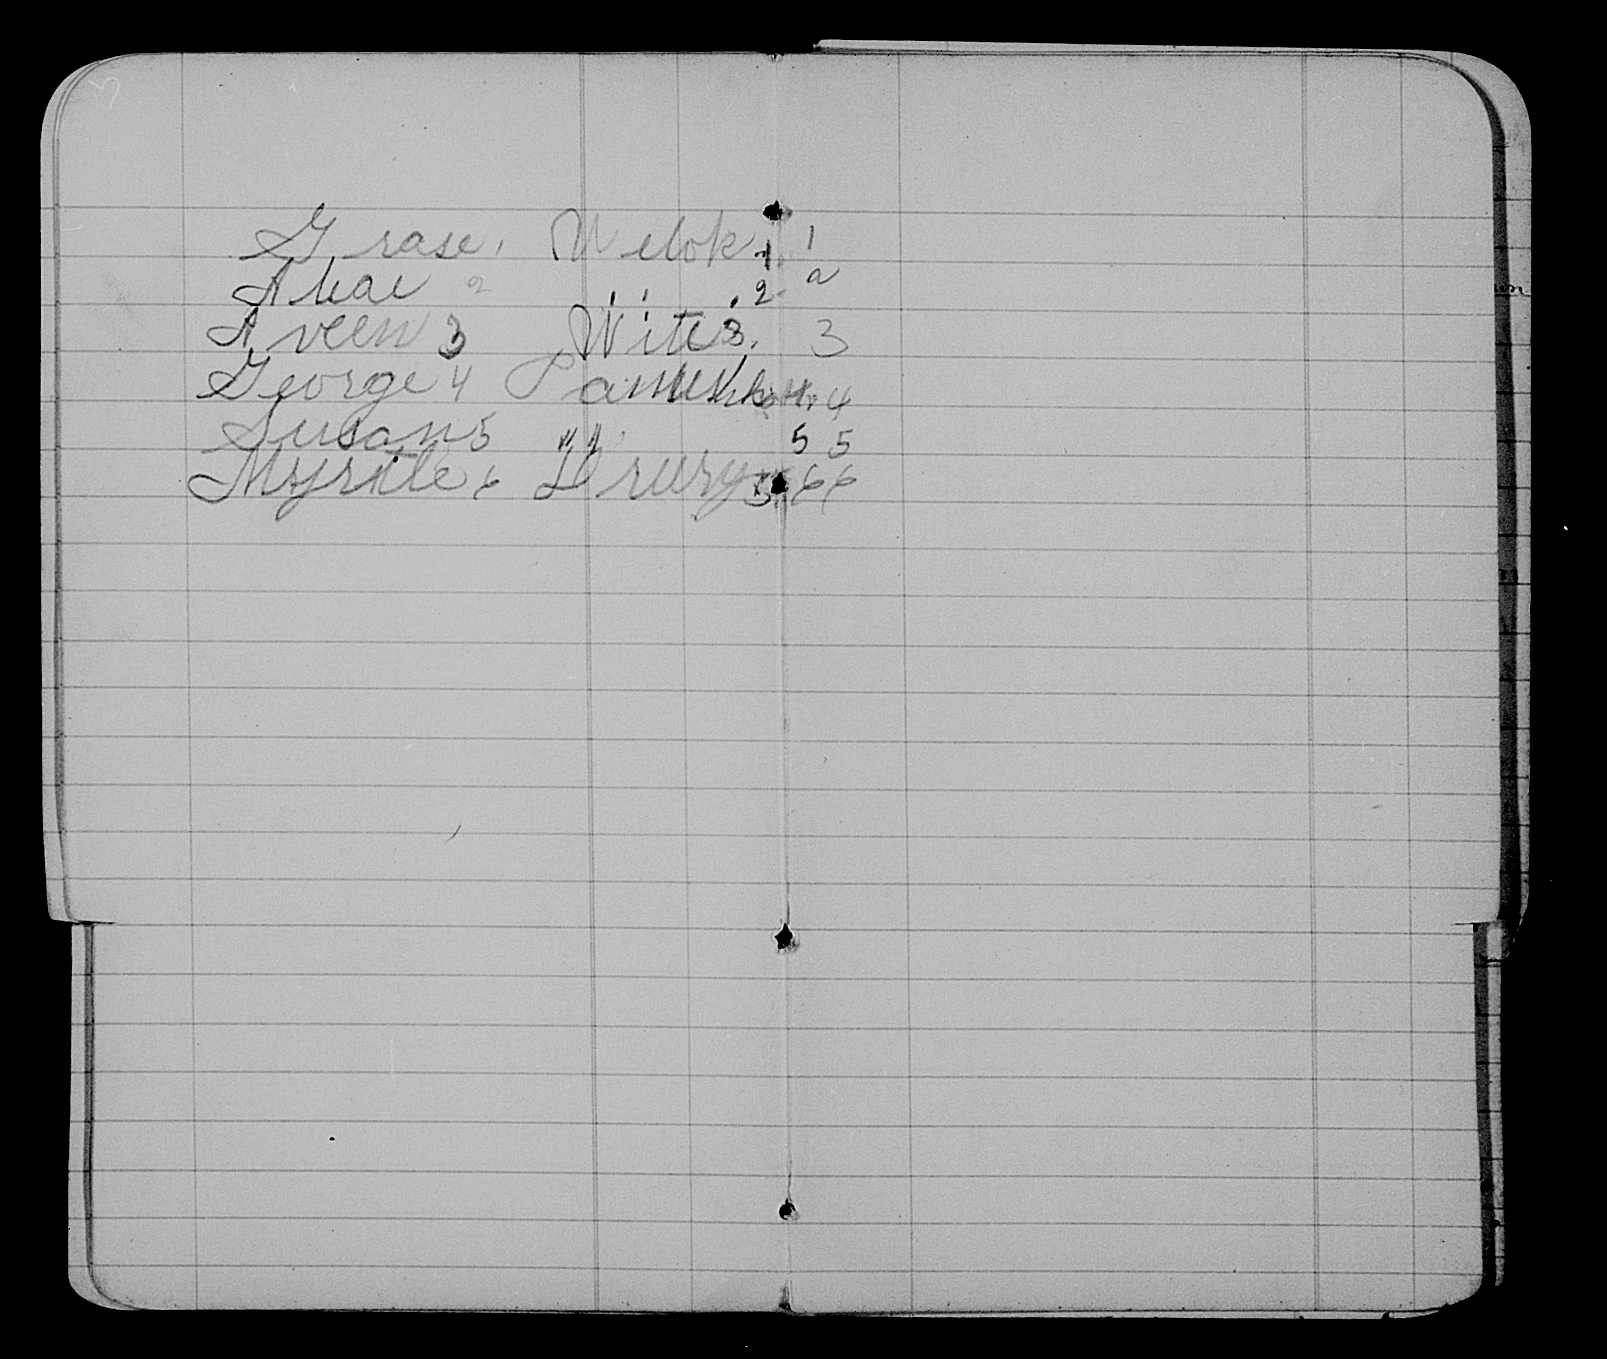 Grase 1 Welok 1. 1
Abai 2 " " 2 2
Aveen 3 Wites 3. 3
George 4 4. 4
Susan 5 " " 5 5
Myrtle 6 Drury 6 6